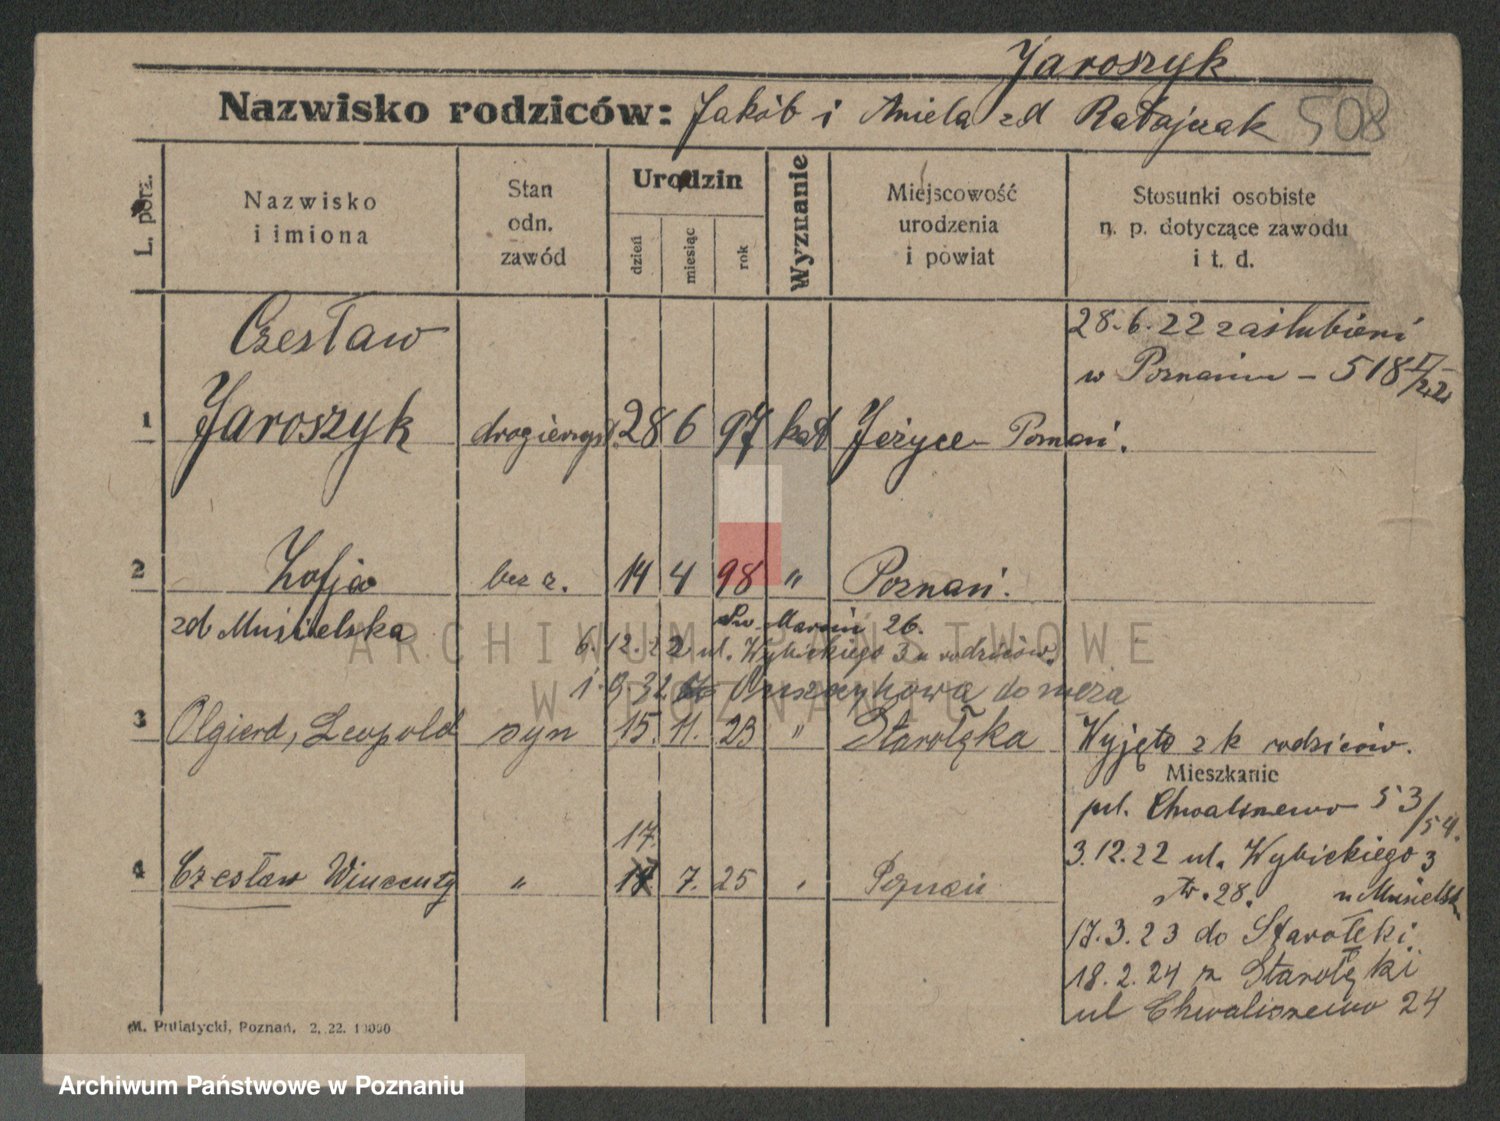 Jaroszyk
Nazwisko rodziców: Jakób i Aniela zd Ratajczak 508
L. porz.
Nazwisko
i imiona
Stan
odn.
zawód
Urodzin
dzień
miesiąc
rok
Wyznanie
Miejscowość
urodzenia
i powiat
Stosunki osobiste
n. p. dotyczące zawodu
i t. d.
28.6.22 zaślubieni
w Poznaniu - 518
Czesław
1 Jaroszyk drogierzyst. 28 6 97 kat Jeżyce - Poznań.
2 Zofja bez z. 14 4 98 " Poznań.
zd Musielska
Św. Marcin 26.
6.12.22 ul. Wybickiego 3 u rodziców.
do męża
3 Olgierd, Leopold syn 15. 11. 23 " Starołęka
Wyjęto z k rodziców.
Mieszkanie
pl. Chwaliszewo 53/54.
17.
4 Czesław Wincenty " 17 7. 25 Poznań
3.12.22 ul. Wybickiego 3
tr. 28. u Musielsk
17.3.23 do Starołeki
18.2.24 z Starołęki
ul Chwaliszewo 24
M. Putiatycki, Poznań, 2, 22.
ARCHIWUM PAŃSTWOWE
W POZNANIU
Archiwum Państwowe w Poznaniu